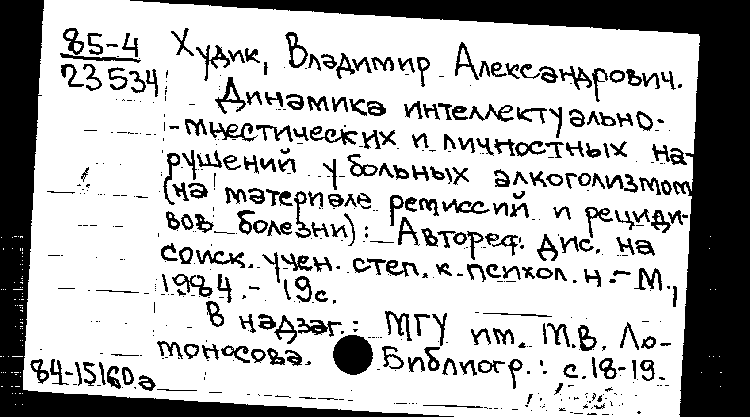 85-4
23534
Худик, Владимир Александрович.
Динамика интеллектуально-
-мнестических и личностных на-
рушений у больных алкоголизмом
(на материале ремиссий и рециди-
вов болезни): Автореф. дис. на
соиск. учен. степ. к. психол. н. - М.,
1984. - 19 с.
В надзаг.: МГУ им. М.В. Ло-
моносова. Библиогр.: с. 18-19.
84-15160а